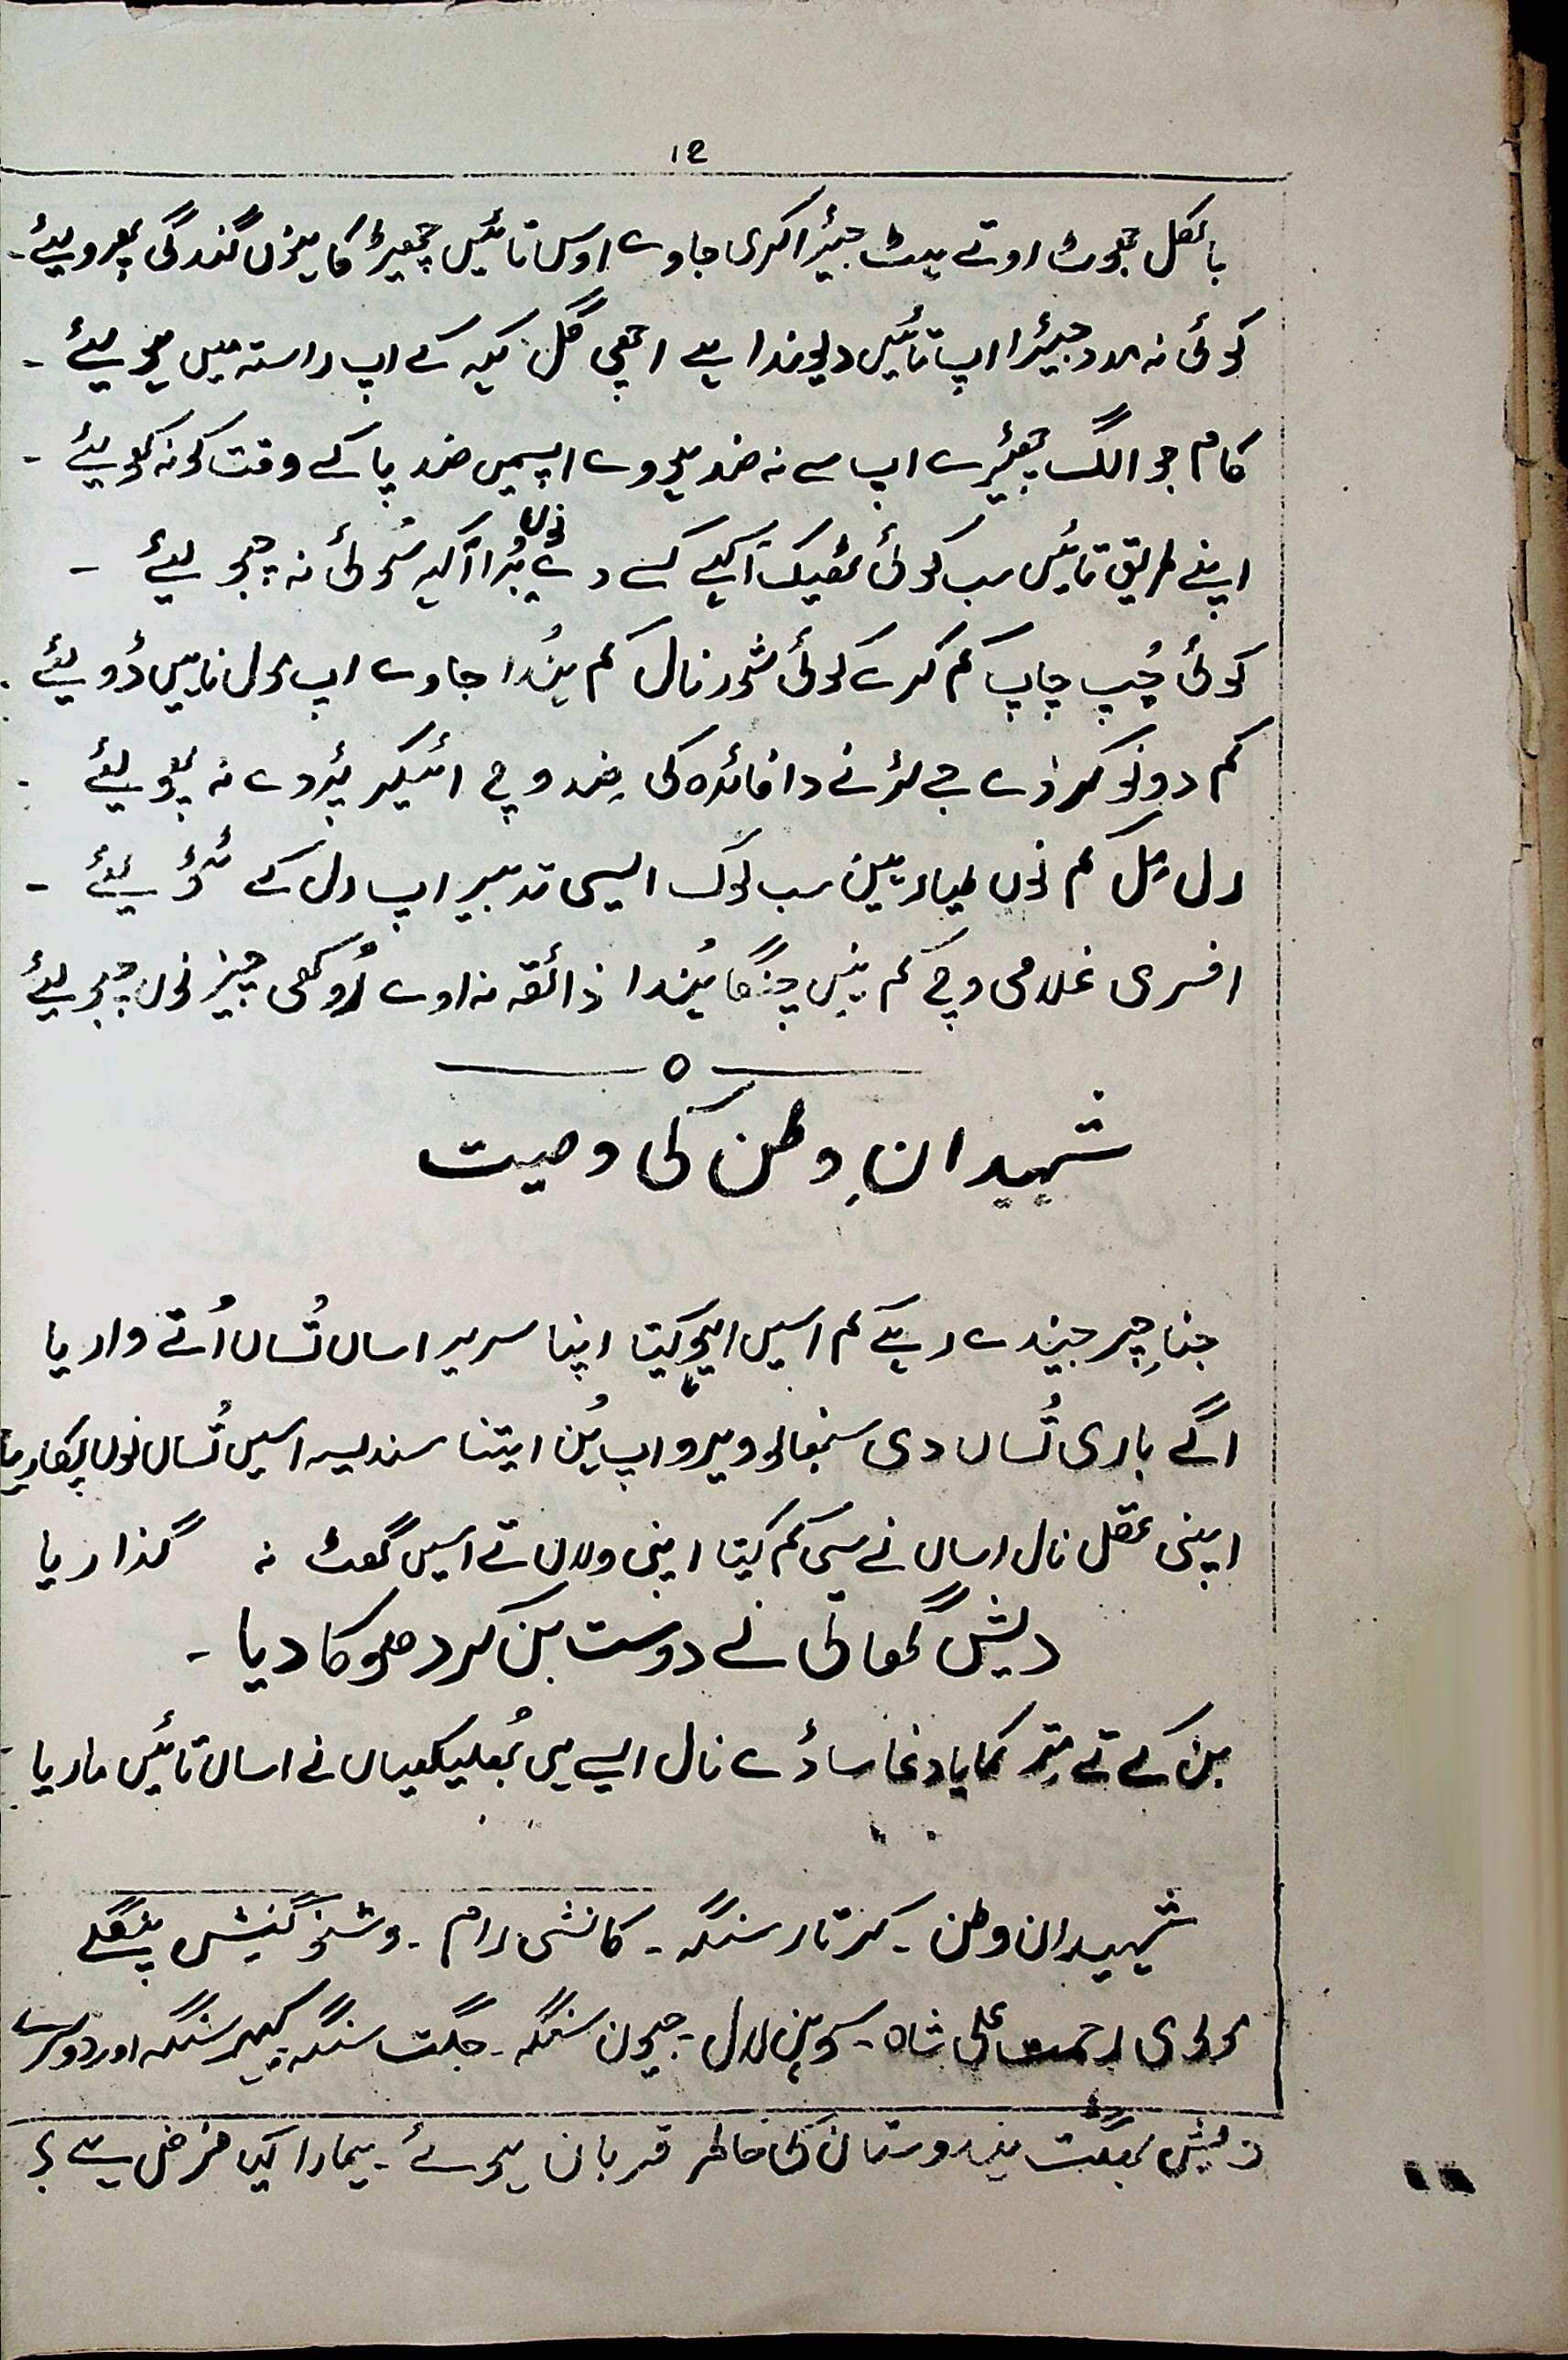 12
بالکل جھوٹ اوتے ہٹ جیڑا کری جاوے اوس تائیں چھیڑ کاہنوں گندگی پھرولیئے۔
کوئی نہ مدد جیڑا اپ تائیں دیوندا ہے اچھی گل کہہ کے اپ راستہ میں ہولیئے ۔
کام جو الگ چھیڑے اپ سے نہ ضد ہووے اپسمیں ضد پا کے وقت کو نہ کھولیئے ۔
اپنے طریق تائیں سب کوئی ٹھیک آکھے کسے دے نوں بُرا آکہہ سُوئی نہ چبولیئے ۔
کوئی چُپ چاپ کم کرے کوئی شور نال کم ہُندا جاوے اپ ڈول ناہیں ڈولیئے ۔
کم دونو کرنڈے جے لڑنے دا فائدہ کی ضد وچ ائیکر پڑدے نہ پھولیئے ۔
رل مِل کم نوں لیا رہین سب لوک ایسی تدبیر اپ رل کے ٹٹولیئے ۔
افسری غلامی وچ کم نہیں چنگا ہُندا ذائقہ نہ اوے اُوکھی چیز نوں چبولیئے
شہیدانِ وطن کی وصیت
جِنا چِر جیندے رہے کم اسیں ایہو کیتا اپنا سریر اساں تُساں اُتے واریا
اگے باری تُساں دی سنبھالو ویرو اپ ہُن ایتنا سندیسہ اسیں تُساں نوں پکاریا
اپنی عقل نال اساں نے سی کم کیتا اپنی ولاں تے اسیں گھٹ نہ گذاریا
دیش گھاتی نے دوست بن کر دھوکا دیا ۔
بن کے تے مِتر کمایا دغا ساڈے نال ایسے ہی بُھلیکھیاں نے اساں تائیں ماریا
شہیدان وطن ۔ کرتار سنگہ ۔ کانشی رام ۔ وشنو گنیش پنگلے
مولوی رحمت علی شاہ ۔ سوہن لال ۔ جیون سنگہ ۔ جگت سنگہ ۔ کیہر سنگہ اور دوسرے
دیش بھگت ہندوستان کی خاطر قربان ہوئے ۔ ہمارا کیا فرض ہے ؟